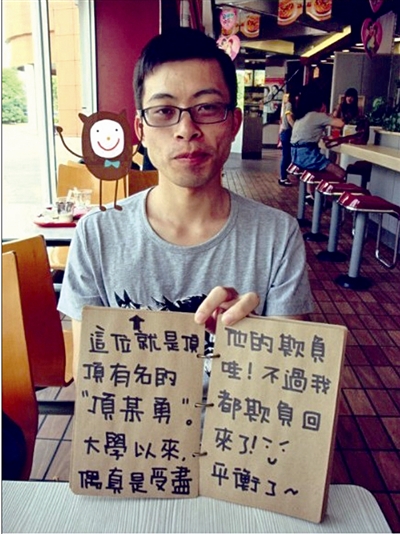 這位就是頂
頂有名的
"項某勇"。
大學以來，
偶真是受盡
他的欺負
哇！不過我
都欺負回
來了！
平衡了~